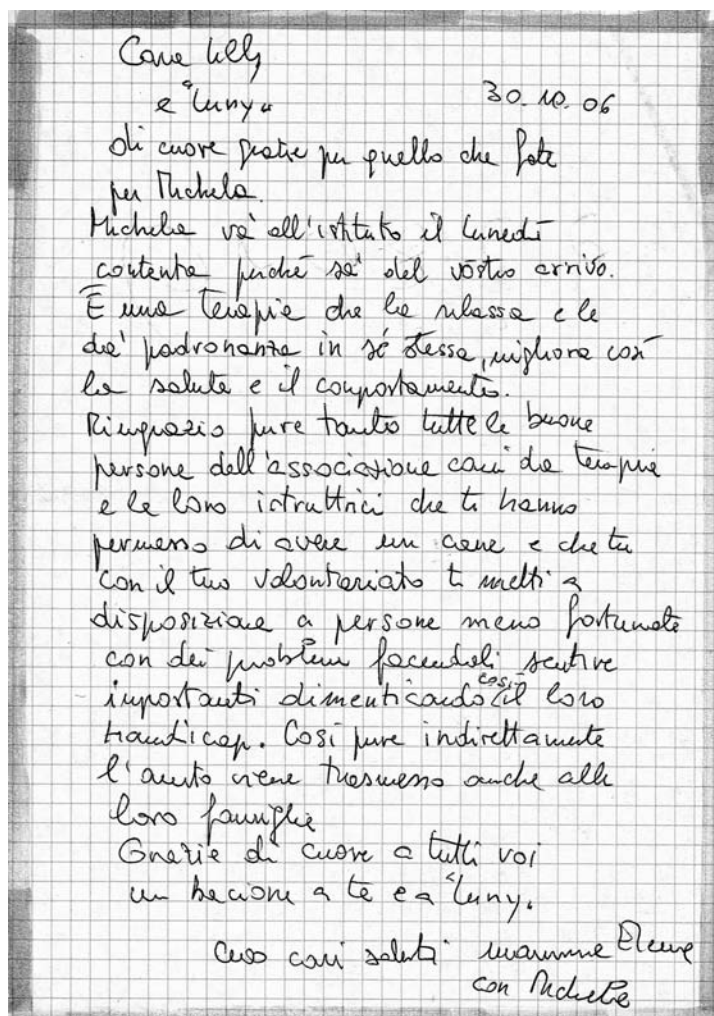 Cara Lilly
e "Luny"
30.10.06
di cuore grazie per quello che fate
per Michela.
Michela va' all'istituto il lunedì
contenta perché sa' del vostro arrivo.
È una terapia che la rilassa e le
da' padronanza in sé stessa, migliora così
la salute e il comportamento.
Ringrazio pure tanto tutte le buone
persone dell'associazione cani da terapia
e le loro istruttrici che ti hanno
permesso di avere un cane e che tu
con il tuo volontariato ti metti a
disposizione a persone meno fortunate
con dei problemi facendoli sentire
importanti dimenticando così il loro
handicap. Così pure indirettamente
l'aiuto viene trasmesso anche alle
loro famiglie
Grazie di cuore a tutti voi
un bacione a te e a "Luny"
cari saluti mamma Elena
con Michela